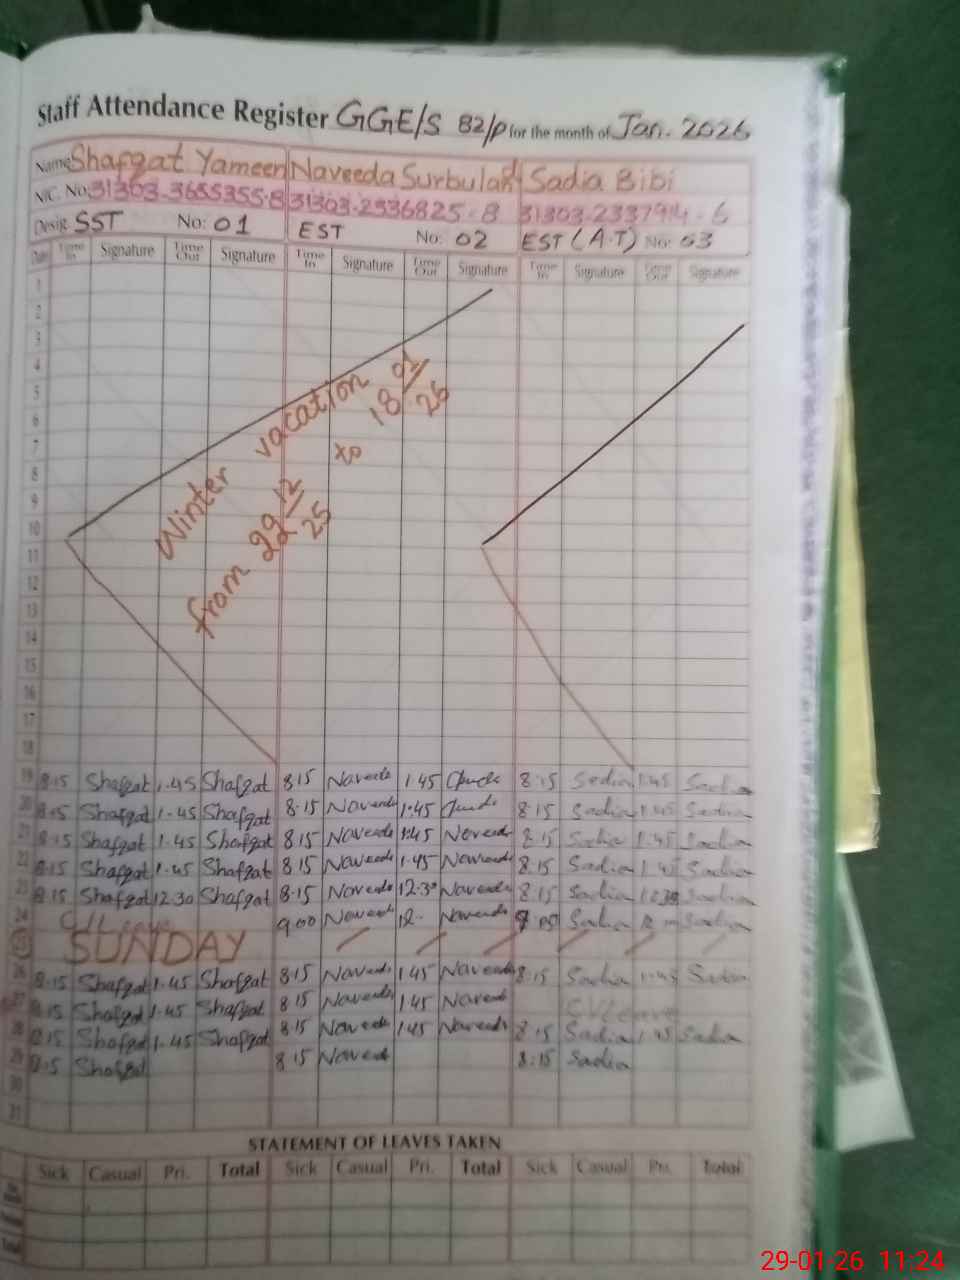 Staff Attendance Register GGE/S 82/P for the month of Jan. 2026
Name Shafqat Yameen Naveeda Surbuland Sadia Bibi
N.I.C. No. 31303-3655355-8 31303-2536825-8 31303-233794-6
Desig. SST No: 01 EST No: 02 EST (A.T) No: 03
Date Time In Signature Time Out Signature Time In Signature Time Out Signature Time In Signature Time Out Signature
1
2
3
4
5
6
7
8
9
10
11
12
13
14
15
16
17
18
Winter vacation
from 22 12/25 to 18 01/26
19 8:15 Shafqat 1.45 Shafqat 8 15 Naveeda 1 45 8:15 Sadia 1:45 Sadia
20 8:15 Shafqat 1.45 Shafqat 8.15 Naveeda 1.45 8:15 Sadia 1.45 Sadia
21 8:15 Shafqat 1.45 Shafqat 8.15 Naveeda 1.45 Naveeda 8.15 Sadia 1.45 Sadia
22 8:15 Shafqat 1.45 Shafqat 8.15 Naveeda 1.45 Naveeda 8.15 Sadia 1.45 Sadia
23 8:15 Shafqat 12.30 Shafqat 8.15 Naveeda 12.30 Naveeda 8.15 Sadia Sadia
24 C/Leave 9.00 Naveeda 12. Naveeda Sadia Sadia
25 SUNDAY
26 8.15 Shafqat 1.45 Shafqat 8.15 Naveeda 1.45 Naveeda 8.15 Sadia 1.45 Sadia
27 8.15 Shafqat 1.45 Shafqat 8 15 Naveeda 1.45 Naveeda C/Leave
28 8.15 Shafqat 1.45 Shafqat 8.15 Naveeda 1.45 Naveeda 8 15 Sadia 1 45 Sadia
29 8.15 Shafqat 8 15 Naveeda 8:15 Sadia
30
31
STATEMENT OF LEAVES TAKEN
Sick Casual Pri. Total Sick Casual Pri. Total Sick Casual Pri. Total
Total
29-01-26 11:24